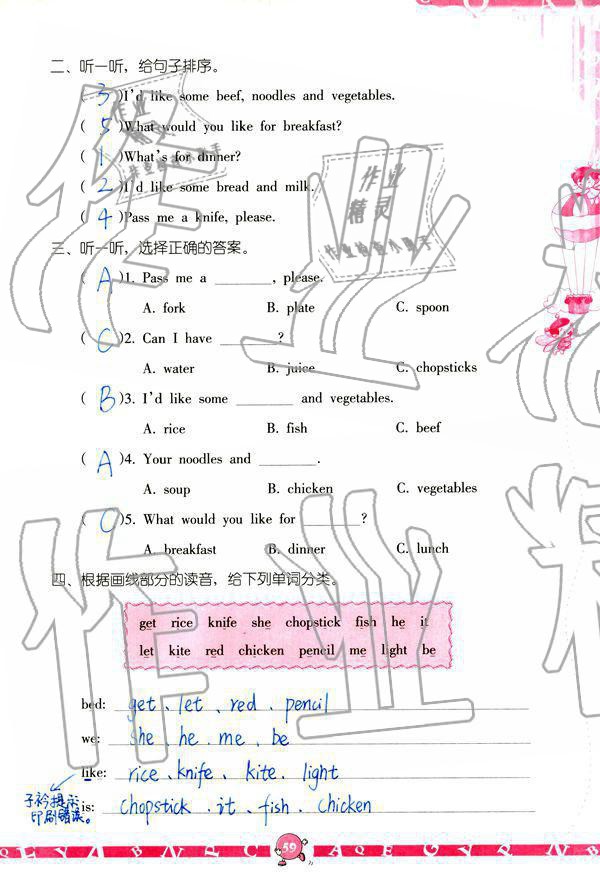 二、听一听，给句子排序。
( 3 )I'd like some beef, noodles and vegetables.
( 5 )What would you like for breakfast?
( 1 )What's for dinner?
( 2 )I'd like some bread and milk.
( 4 )Pass me a knife, please.
三、听一听，选择正确的答案。
( A )1. Pass me a ________, please.
A. fork B. plate C. spoon
( C )2. Can I have ________?
A. water B. juice C. chopsticks
( B )3. I'd like some ________ and vegetables.
A. rice B. fish C. beef
( A )4. Your noodles and ________.
A. soup B. chicken C. vegetables
( C )5. What would you like for ________?
A. breakfast B. dinner C. lunch
四、根据画线部分的读音，给下列单词分类。
get rice knife she chopstick fish he it
let kite red chicken pencil me light be
bed: get、let、red、pencil
we: she、he、me、be
like: rice、knife、kite、light
is: chopstick、it、fish、chicken
子衿提示
印刷错误。
59